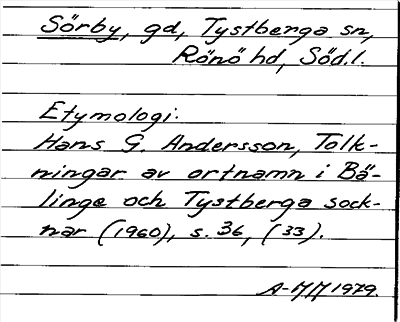 Sörby, gd, Tystberga sn,
Rönö hd, Söd.l.
Etymologi:
Hans G. Andersson, Tolk-
ningar av ortnamn i Bä-
linge och Tystberga sock-
nar (1960), s. 36, (33).
A-MM 1979.